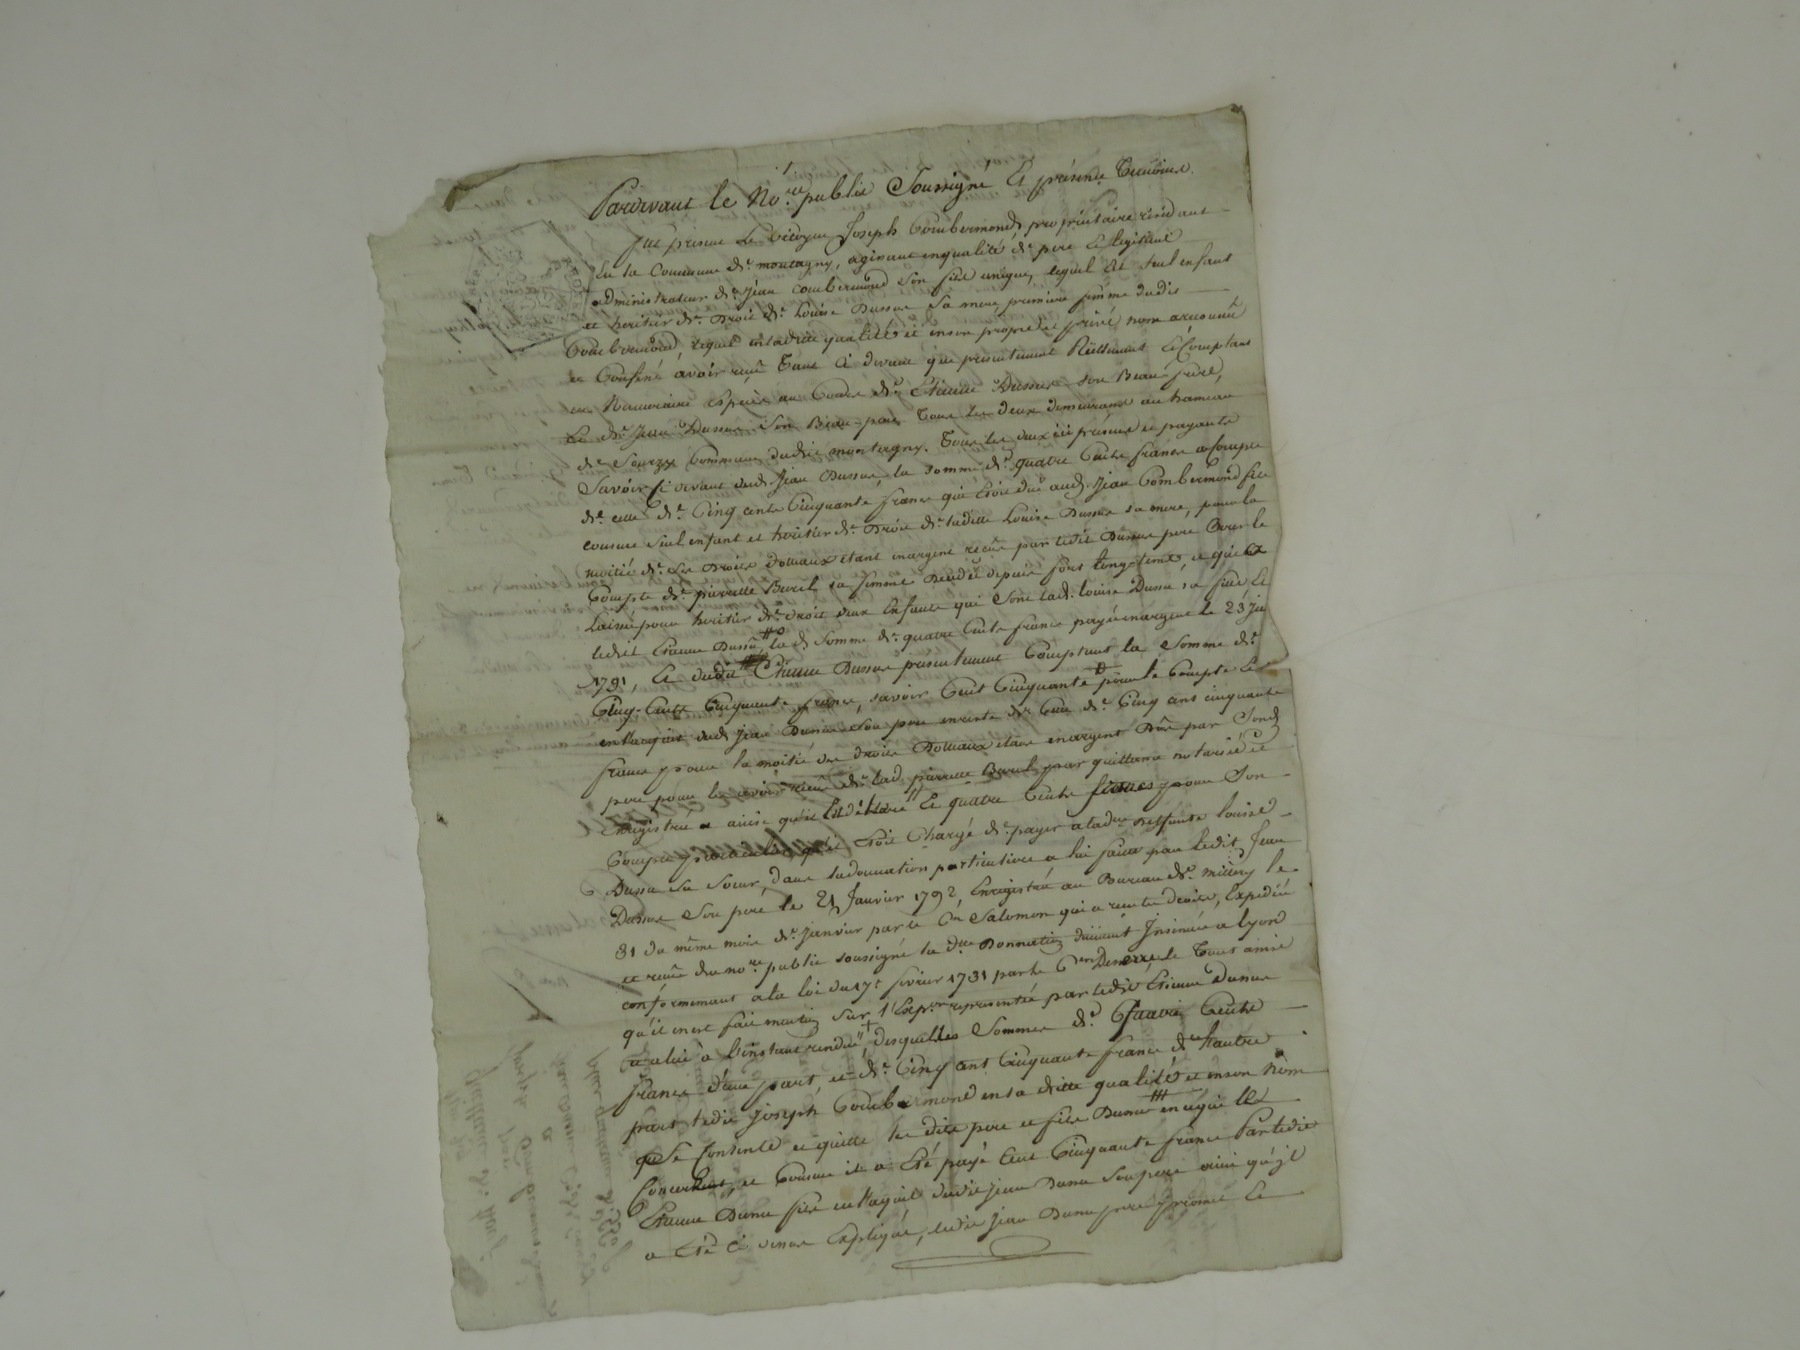 Pardevant le No.re public Soussigné Et présents Temoins
fut présent Le Citoyen Joseph Combermond propriétaire résidant
En la Commune de montagny, agissant en qualité de pere Et légitime
administrateur de Jean Combermond Son fils unique, lequel est Seul enfant
et heritier de Droit de Louise Dussue Sa mere, premiere femme dudit
Combermond, lequel en ladite qualité et en son propre et privé nom a reconnu
et Confessé avoir reçu Tant Ci devant que présentement Réellement Et Comptant
en Numeraire espèce au Cours de Etienne Dussue son Beau-frere,
Et de Jean Dussue Son Beau-pere Tous les deux demeurans au hameau
de Sourzy Commune dudit montagny. Tous les deux ici présens et payants
Savoir Ci devant dud. Jean Dussue, la Somme de quatre Cents francs a Compte
de celle de Cinq cents Cinquante francs qui Etoit due aud. Jean Combermond fils
comme Seul enfant et heritier de Droit de ladite Louise Dussue sa mere, pour la
moitié de Les Droits dotaux etant en argent reçus par ledit Dussue pere Pour le
Compte de pierrette Burel sa femme decedée depuis fort longtems, et qui a
Laissé pour heritier de droit deux Enfants qui Sont lad. louise Dussue sa fille Et
ledit Etienne Dussue la d. Somme de quatre Cents francs payée en argent le 23
1791, Et dudit Etienne Dussue présentement Comptant la Somme de
Cinq-Cents Cinquante francs, savoir Cent Cinquante pour le Compte Et
en l'acquit dud. Jean Dussue Son pere en reste de Celle de Cinq cens cinquante
francs pour la moitié des droits Dotaux etant en argent Dus par Sond.
pere pour les avoir reçus de lad. pierrette Burel par quittance notariée et
Enregistrée ainsi qu'il l'a déclaré Et quatre Cents francs pour Son
Compte particulier qu'il Etoit Chargé de payer a ladite deffunte louise
Dussue Sa Soeur, dans la donnation particuliere a lui faite par ledit Jean
Dussue Son pere le 21 Janvier 1792, Enregistrée au Bureau de millery le
31 du même mois de Janvier par le C.en Salomon qui a reçu les droits, Expediée
et reçue du no.re public soussigné la d.te Donnation Insinuée a lyon
conformemant a la loi du 17 fevrier 1731 par le C.en Le Tout ainsi
qu'il en est fait mention Sur l'Exp.on representée par ledit Etienne Dussue
a celui à l'instant rendue, desquelles Sommes de Quatre Cents
francs d'une part, et de Cinq cent Cinquante francs de l'autre
part ledit Joseph Combermond en sa dite qualité et en son nom
Se Contente et quitte les dits pere et fils Dussue en ce qui les
Concernent, et Comme il a Eté payé Cent Cinquante francs Par ledit
Etienne Dussue fils en l'acquit dudit Jean Dussue Son pere ainsi qu'il
a Eté Ci dessus Expliqué, ledit Jean Dussue pere promet Et